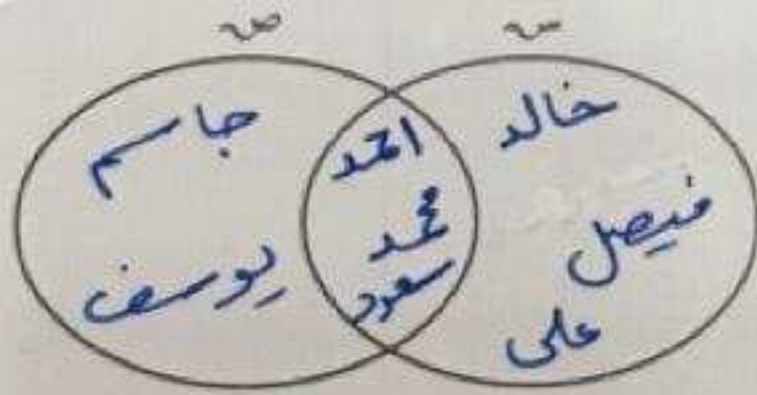 س
ص
خالد
فيصل
على
احمد
محمد
سعود
جاسم
يوسف